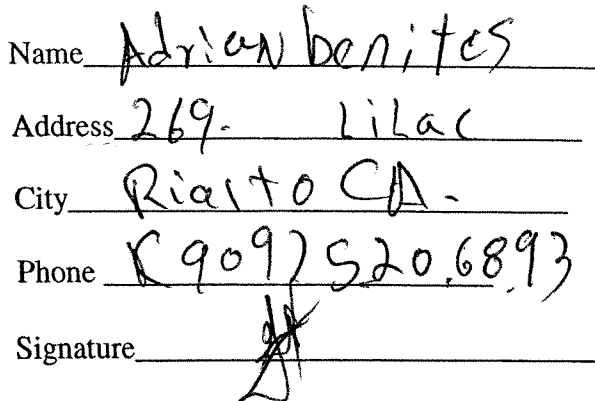 Name Adrian benites
Address 269. Lilac
City Rialto CA.
Phone (909) 520.6893
Signature